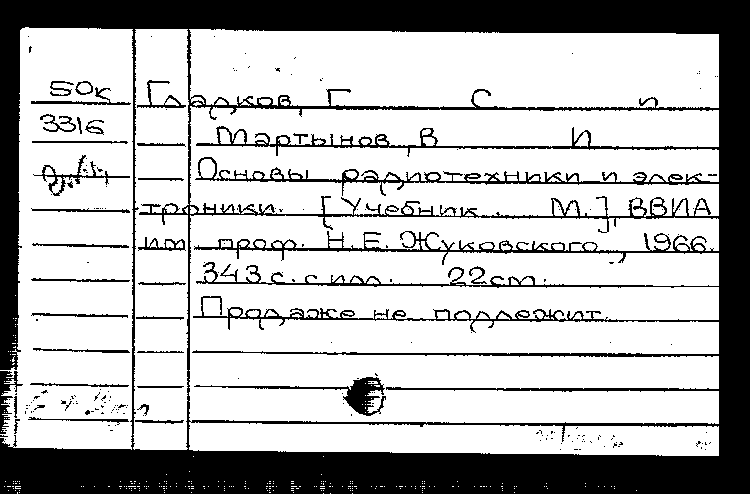 50к Гладков, Г С и
3316 Мартынов, В И
Основы радиотехники и элек-
троники. [Учебник. М.], ВВИА
им проф. Н.Е.Жуковского, 1966.
343 с. с илл. 22 см.
Продаже не подлежит.